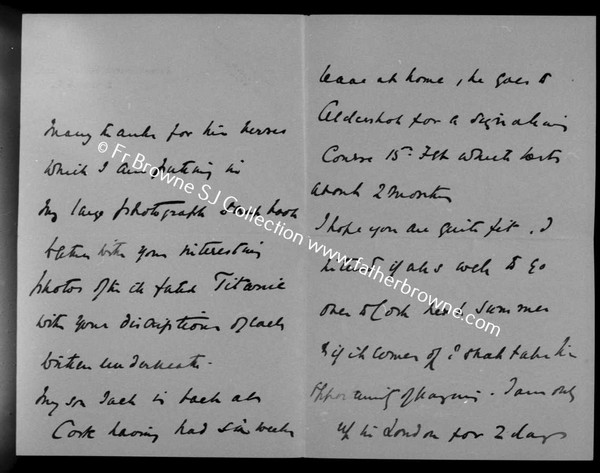 Many thanks for his verses
which I am putting in
my large photograph scrap book
better with your interesting
photos of the ill fated Titanic
with your discriptions of each
written underneath.
My son Jack is back at
Cork having had six weeks
leave at home, he goes to
Aldershot for a signaling
Course 15th Feb which lasts
about 2 months
I hope you are quite fit. I
intend if all is well to go
over to Cork next summer
& if it comes off I shall take the
opportunity of
I am only
up in London for 2 days
© Fr Browne SJ Collection www.fatherbrowne.com